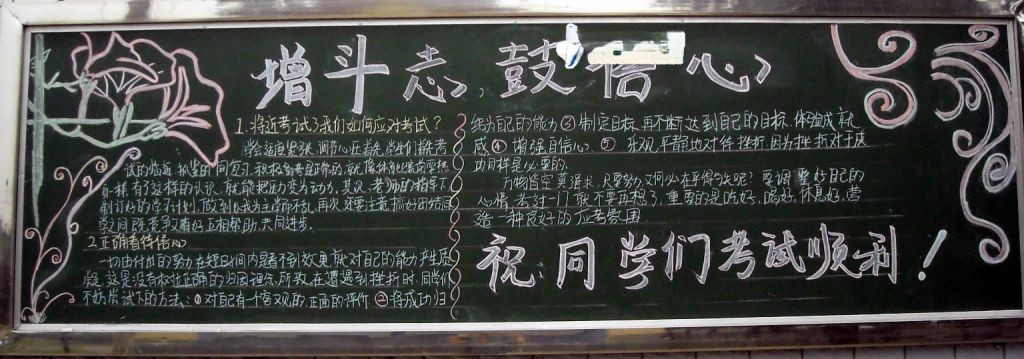 增斗志,鼓信心
1.将近考试了我们如何应对考试?
学会适度紧张,调节心态
试的临近
有了这样的认识,就能把压力变为动力,其次,老师的指导下
制订好的学习计划,做到以我为主学而不乱,再次还要注意搞好团结同
学之间既竞争又有好互相帮助,共同进步.
2.正确看待信心
一切由付出的努力在短时间内是看不到效果就对自己的能力产生质
疑,这是没有树立正确的归因理念,所致,在遭遇到挫折时,同学们
不妨尝试下的方法:①对自己有个客观的,正面的评价②将成功归
结为自己的能力③制定目标,再不断达到自己的目标,体验成就
感④增强自信心.⑤乐观,平静地对待挫折,因为挫折对于成
功同样是必要的.
万物皆空莫强求,只要努力又何必在乎得与失呢?要调整好自己的
心情,考过一门就不要再想了,重要的是吃好、喝好、休息好,营
造一种良好的应考氛围
祝:同学们考试顺利!